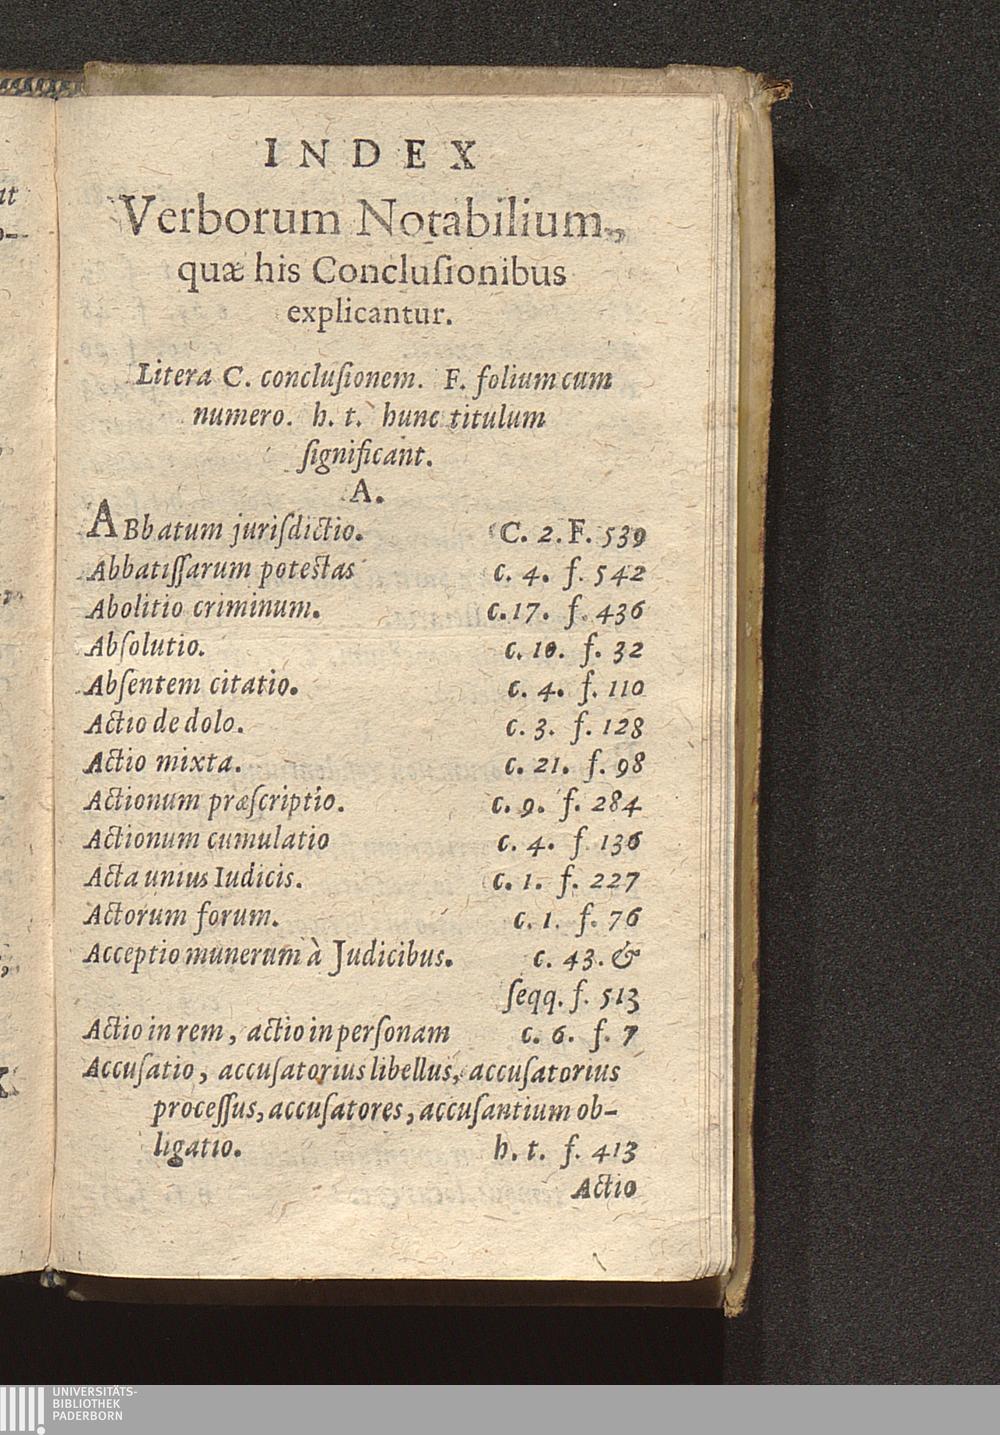 INDEX
Verborum Notabilium,
quæ his Concluſionibus
explicantur.
Litera C. concluſionem. F. folium cum
numero. h. t. hunc titulum
ſignificant.
A.
ABbatum juriſdictio. C. 2. F. 539
Abbatiſſarum potestas c. 4. f. 542
Abolitio criminum. c. 17. f. 436
Abſolutio. c. 10. f. 32
Abſentem citatio. c. 4. f. 110
Actio de dolo. c. 3. f. 128
Actio mixta. c. 21. f. 98
Actionum præſcriptio. c. 9. f. 284
Actionum cumulatio c. 4. f. 136
Acta unius Iudicis. c. 1. f. 227
Actorum forum. c. 1. f. 76
Acceptio munerum à Judicibus. c. 43. &
ſeqq. f. 513
Actio in rem, actio in perſonam c. 6. f. 7
Accuſatio, accuſatorius libellus, accuſatorius
proceſſus, accuſatores, accuſantium ob-
ligatio. h. t. f. 413
Actio
UNIVERSITÄTS-
BIBLIOTHEK
PADERBORN